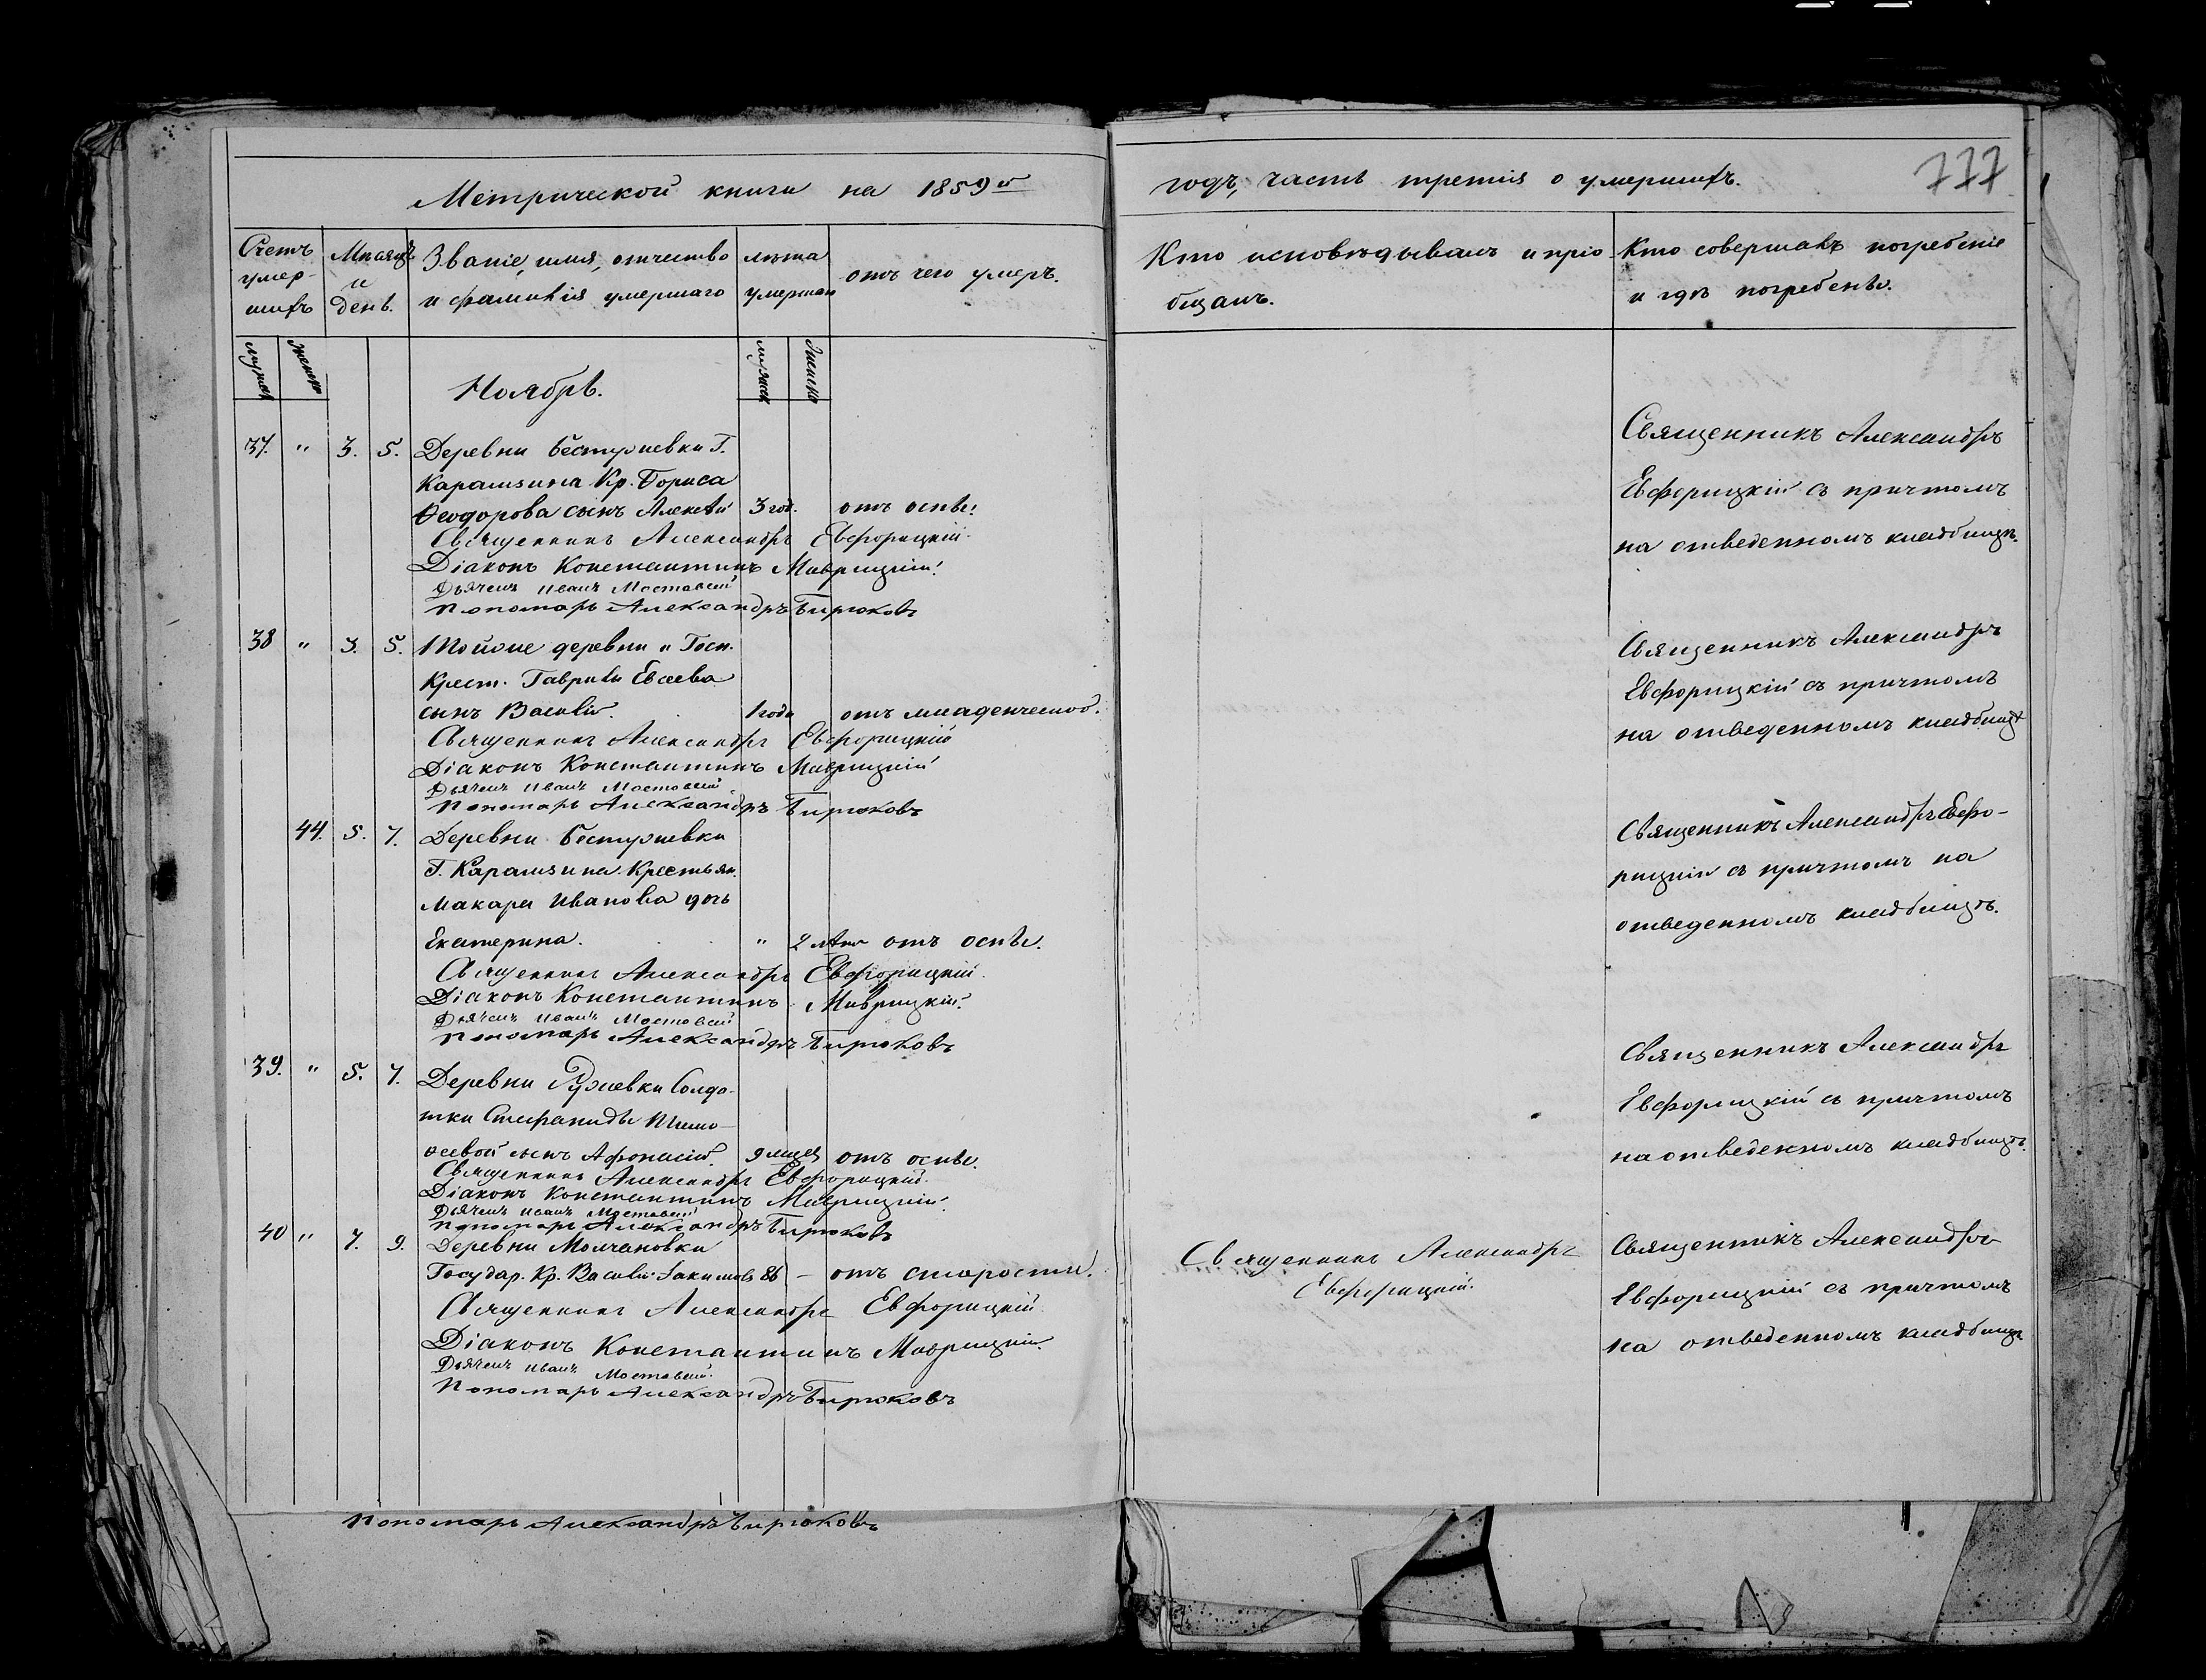 Метрической книги на 1859й
годъ, часть третія о умершихъ.
777
Счетъ умер-шихъ
Мѣсяцъ и день.
Званіе, имя, отчество и фамилія умершаго
лѣта умершаго
отъ чего умеръ.
Кто исповѣдывалъ и пріобщалъ.
Кто совершалъ погребеніе и гдѣ погребенъ.
Ноябрь.
37. " 3. 5. Деревни Бестужевки Г.
Карамзина Кр. Бориса
Ѳеодорова сынъ Алексѣй 3 год. отъ оспы.
Священникъ Александръ Евфорицкій.
Діаконъ Константинъ Маврицкій.
Дьячекъ Иванъ Мостовой
Пономарь Александръ Бирюковъ
Священникъ Александръ
Евфорицкій съ причтомъ
на отведенномъ кладбищѣ.
38 " 3. 5. Тойже деревни и Госп.
Крест. Гаврилы Евсеева
сынъ Василій. 1 года отъ младенческой.
Священникъ Александръ Евфорицкій
Діаконъ Константинъ Маврицкій
Дьячекъ Иванъ Мостовой
Пономарь Александръ Бирюковъ
Священникъ Александръ
Евфорицкій съ причтомъ
на отведенномъ кладбищѣ
44. 5. 7. Деревни Бестужевки
Г. Карамзина Крестьян.
Макара Иванова дочь
Екатерина. " 2 лѣтъ отъ оспы.
Священникъ Александръ Евфорицкій.
Діаконъ Константинъ Маврицкій.
Дьячекъ Иванъ Мостовой
Пономарь Александръ Бирюковъ
Священникъ Александръ Евфо-
рицкій съ причтомъ на
отведенномъ кладбищѣ.
39. " 5. 7. Деревни Солда-
тки Стефаниды Тимо-
ѳеевой сынъ Афонасій. 9 мщей отъ оспы.
Священникъ Александръ Евфорицкій.
Діаконъ Константинъ Маврицкій.
Дьячекъ Иванъ Мостовой
Пономарь Александръ Бирюковъ
Священникъ Александръ
Евфорицкій съ причтомъ
на отведенномъ кладбищѣ.
40 " 7. 9. Деревни Молчановки
Государ. Кр. Василій 86 – отъ старости.
Священникъ Александръ Евфорицкій.
Діаконъ Константинъ Маврицкій.
Дьячекъ Иванъ Мостовой.
Пономарь Александръ Бирюковъ
Священникъ Александръ
Евфорицкій.
Священникъ Александръ
Евфорицкій съ причтомъ
на отведенномъ кладбищѣ
Пономарь Александръ Бирюковъ